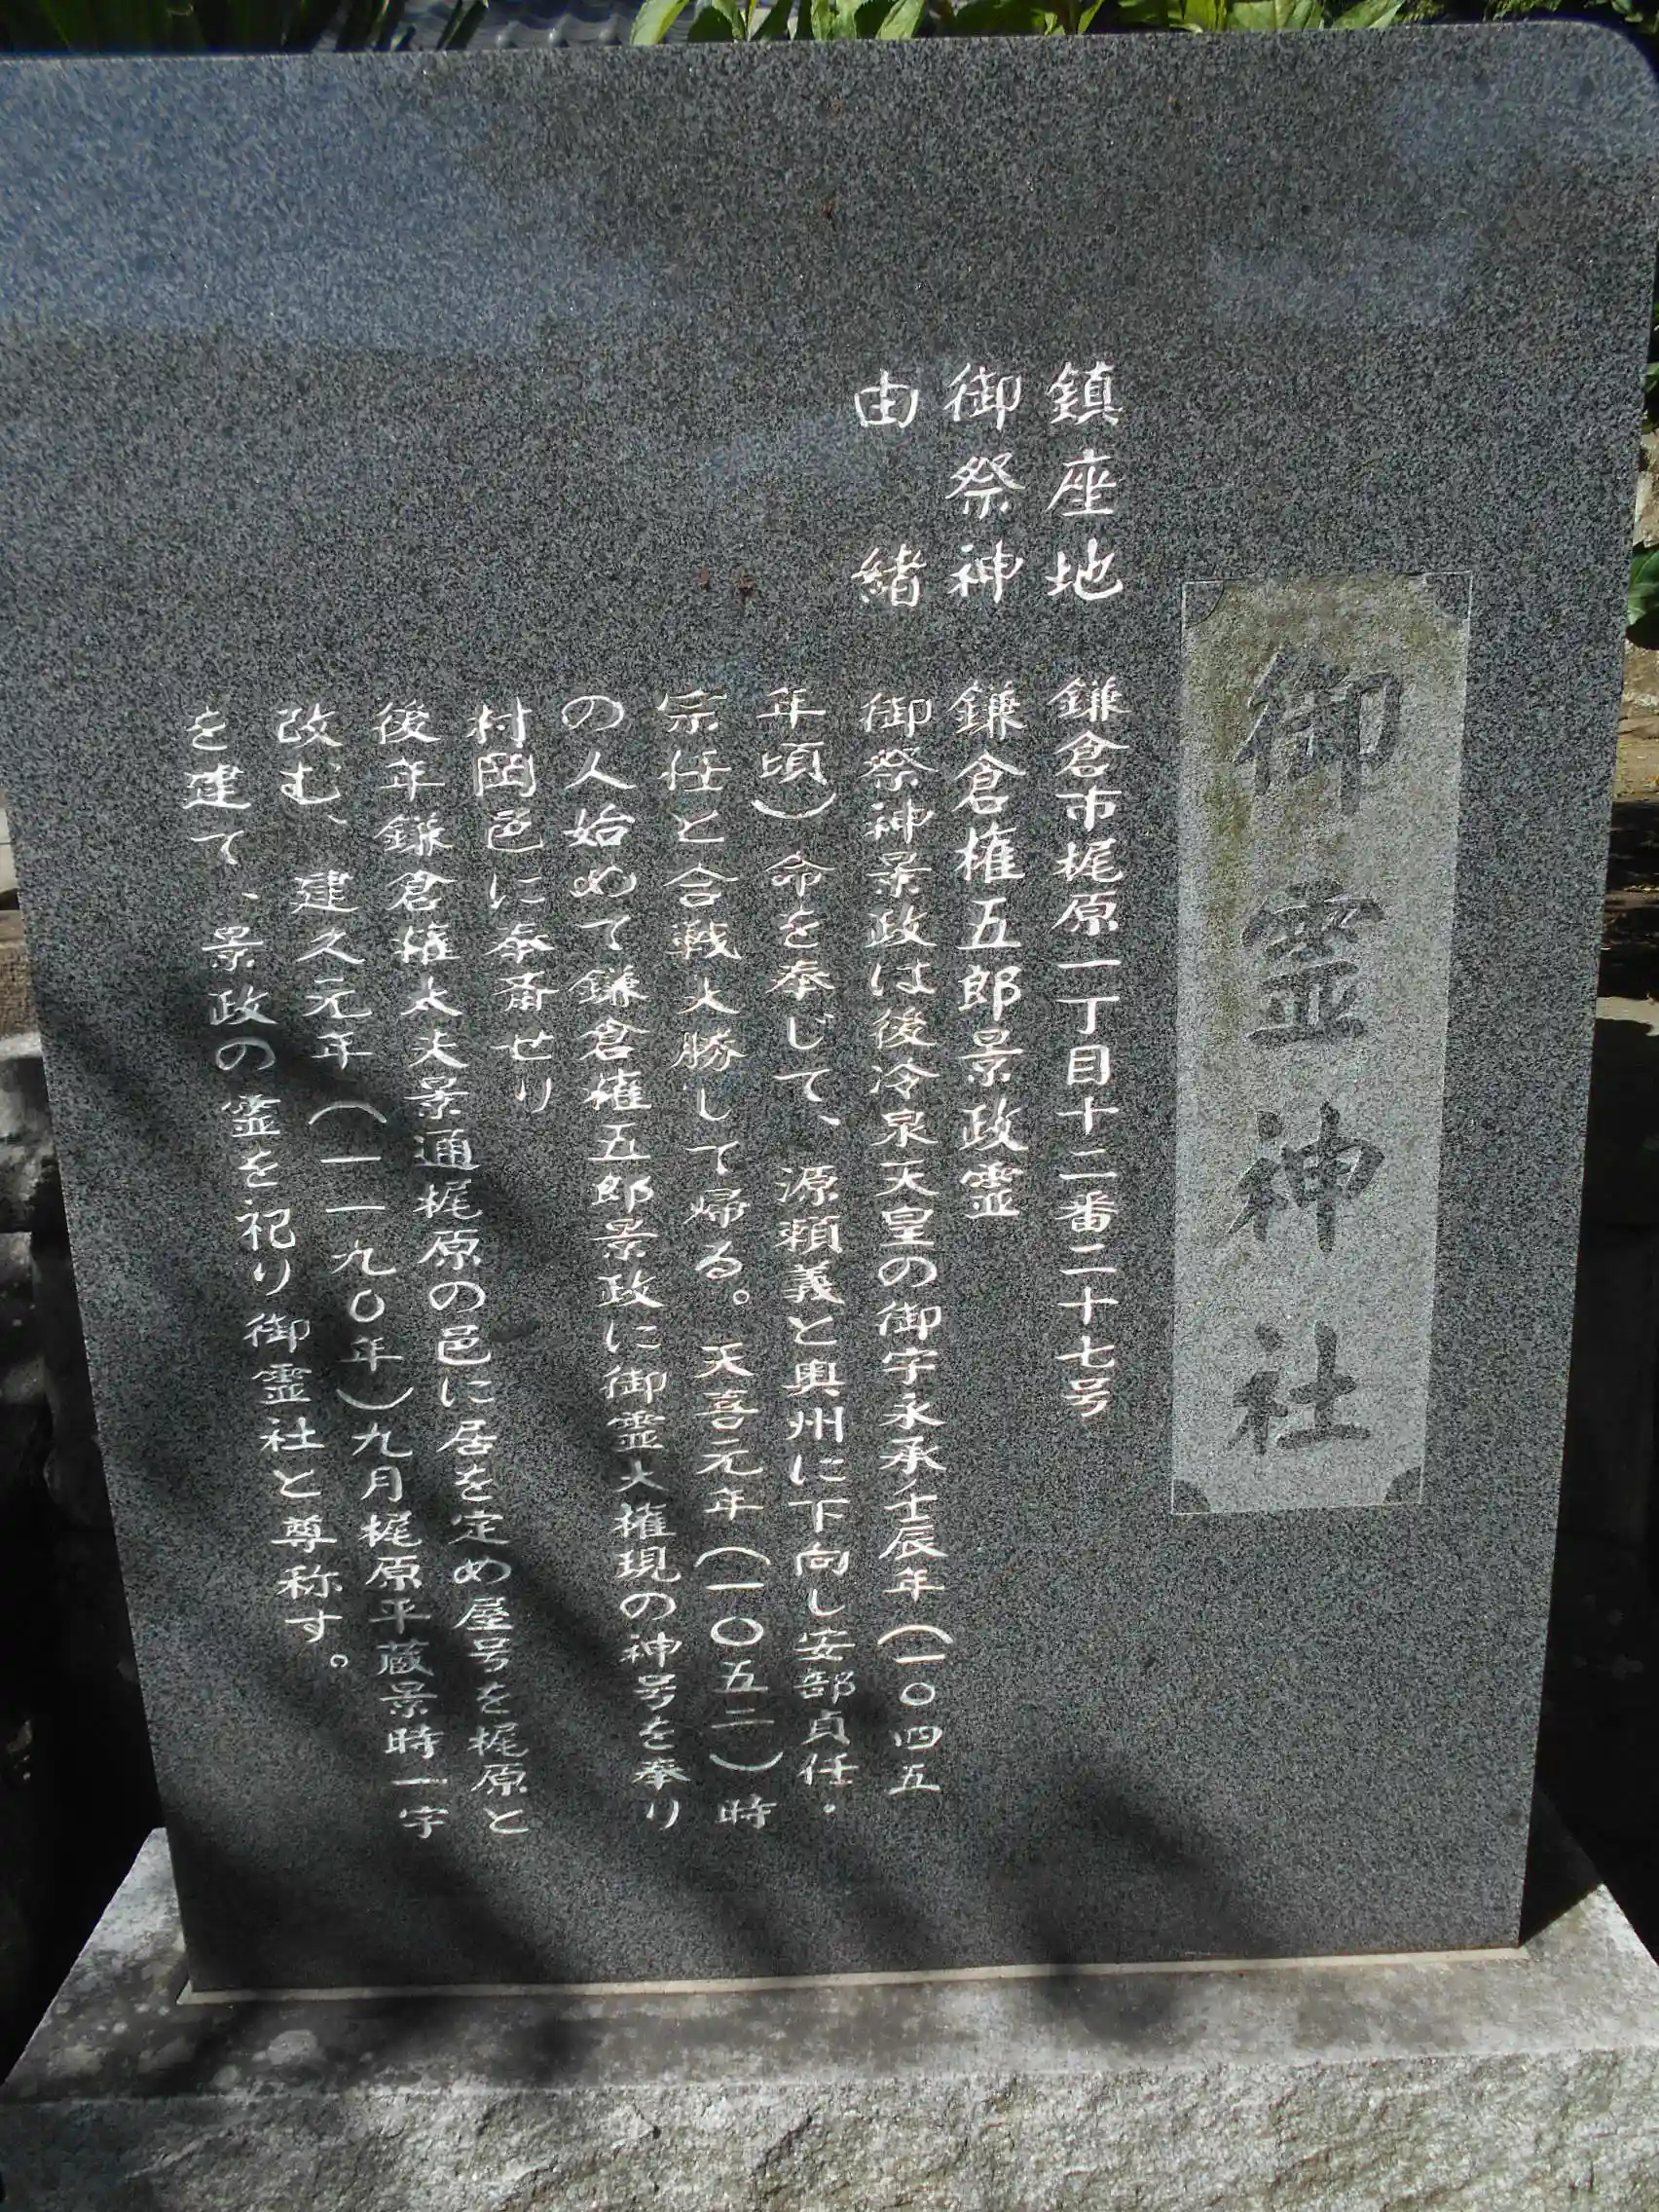 御霊神社
鎮座地 鎌倉市梶原一丁目十二番二十七号
御祭神 鎌倉権五郎景政霊
由緒 御祭神景政は後冷泉天皇の御宇永承壬辰年(一〇四五
年頃)命を奉じて、源頼義と奥州に下向し安部貞任.
宗任と合戦大勝して帰る。天喜元年(一〇五二)時
の人始めて鎌倉権五郎景政に御霊大権現の神号を奉り
村岡邑に奉斎せり
後年鎌倉権太夫景通梶原の邑に居を定め屋号を梶原と
改む、建久元年(一一九〇年)九月梶原平蔵景時一宇
を建て、景政の霊を祀り御霊社と尊称す。